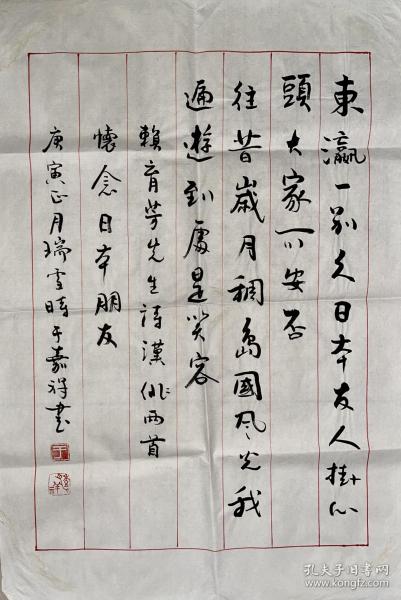 東瀛一别久日本友人掛心
頭大家可安否
往昔歲月稠島國风光我
遍遊到處是笑容
賴育芳先生詩漢俳两首
懷念日本朋友
庚寅正月瑞雪時于嘉祥书
孔夫子旧书网
www.kongfz.com